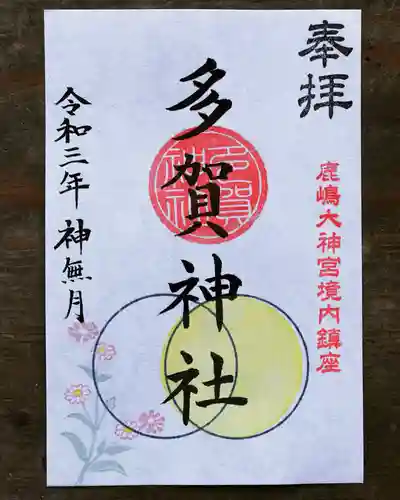 奉拝
鹿嶋大神宮境内鎮座
多賀神社
多賀神社
令和三年 神無月